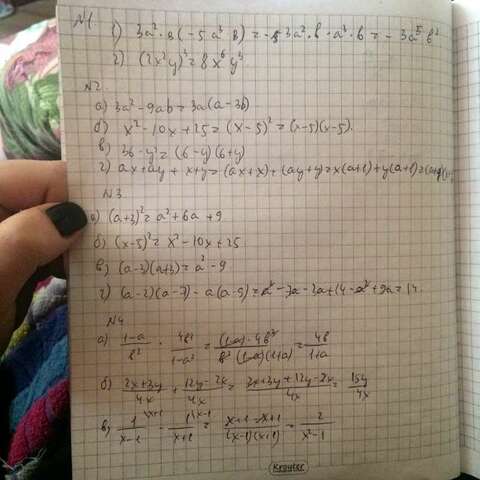 №1
1) 3a²·в(-5a³·в) = -3a²·в·a³·в = -3a⁵в²
2) (2x²y)³=8x⁶y³
№2
а) 3a²-9ab=3a(a-3b)
б) x²-10x+25=(x-5)²=(x-5)(x-5).
в) 36-y²=(6-y)(6+y)
г) ax+ay+x+y=(ax+x)+(ay+y)=x(a+1)+y(a+1)=
№3
а) (a+3)²=a²+6a+9
б) (x-5)²=x²-10x+25
в) (a-3)(a+3)=a²-9
г) (a-2)(a-7)-a(a-9)=a²-7a-2a+14-a²+9a=14.
№4
а) (1-a)/в² · 4в³/(1-a²) = (1-a)·4в³/(в²(1-a)(1+a)) = 4в/(1+a)
б) (2x+3y)/4x + (12y-2x)/4x = (2x+3y+12y-2x)/4x = 15y/4x
в) 1/(x-1) \x+1 - 1/(x+1) \x-1 = (x+1-x+1)/((x-1)(x+1)) = 2/(x²-1)
Kroyter